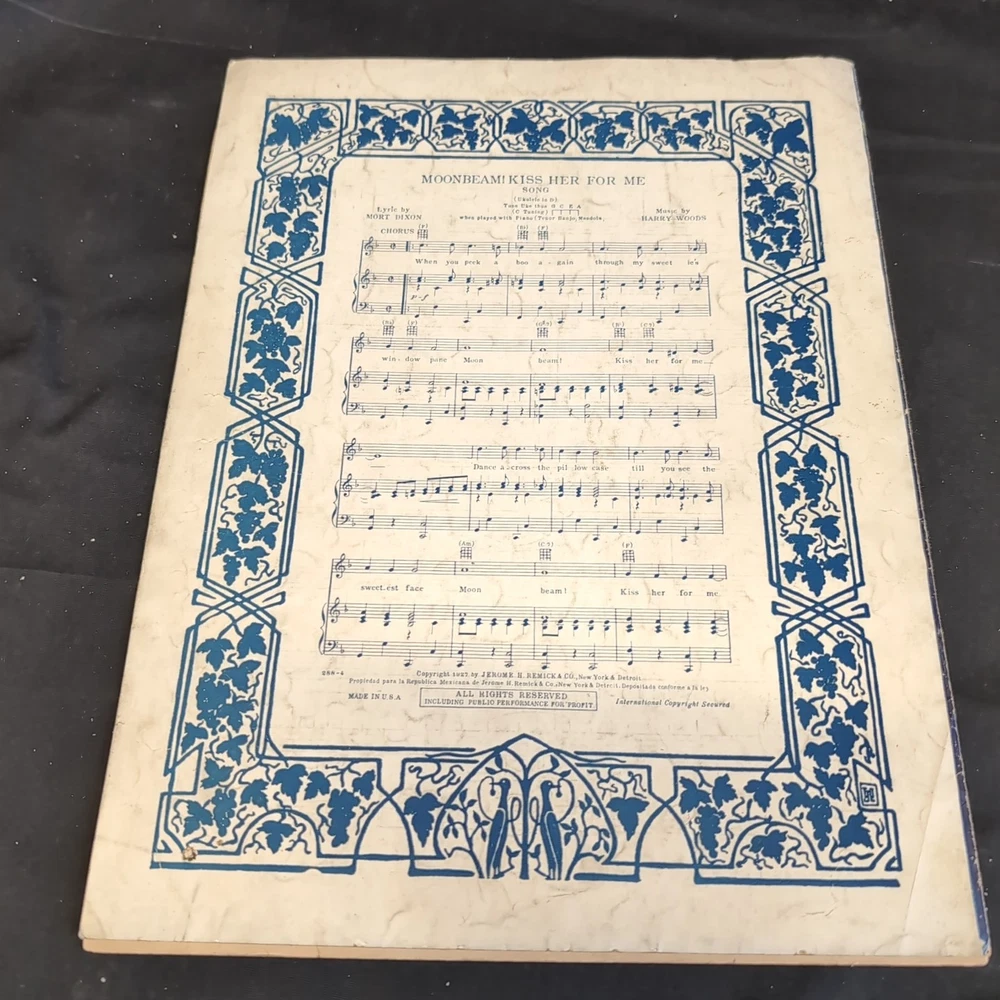 MOONBEAM! KISS HER FOR ME
SONG
(Ukulele in D)
Tune Uke thus G C E A
(C Tuning)
when played with Piano, Tenor Banjo, Mandola,
Lyric by
MORT DIXON
Music by
HARRY WOODS
CHORUS (F) (D♭) (F)
When you peek a boo a-gain through my sweet ie's
p-f
(F)
win-dow pane Moon beam! Kiss her for me
Dance a-cross the pil low case till you see the
(Am) (C7) (F)
sweet-est face Moon beam! Kiss her for me
988-4
Copyright 1927 by JEROME H. REMICK & CO., New York & Detroit
Propiedad para la Republica Mexicana de Jerome H. Remick & Co., New York & Detroit. Depositado conforme a la ley
MADE IN U.S.A.
ALL RIGHTS RESERVED
INCLUDING PUBLIC PERFORMANCE FOR PROFIT.
International Copyright Secured